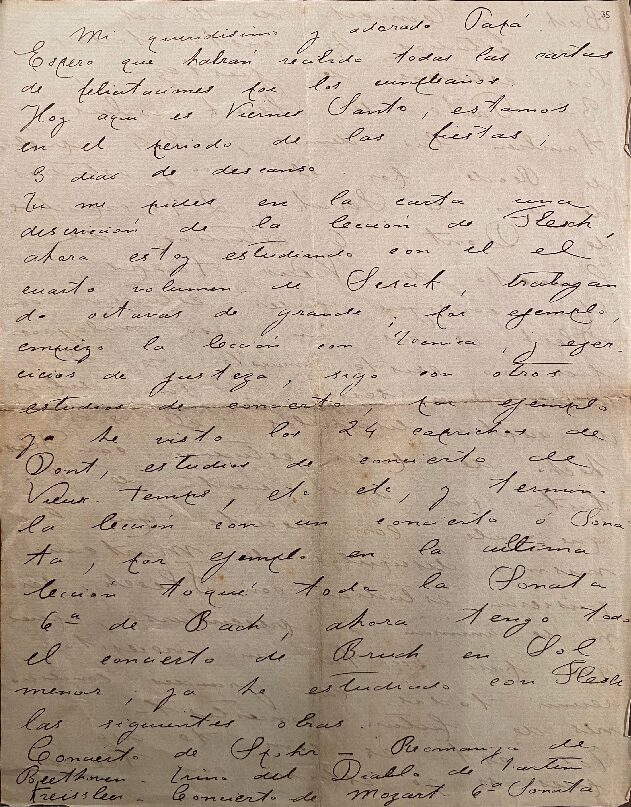 35
Mi queridisimo y adorado Papá.
Espero que habrán recibido todas las cartas
de felicitaciones por los cumpleaños.
Hoy aqui es Viernes Santo, estamos
en el periodo de las fiestas,
3 dias de descanso
Tu me pides en la carta una
descrición de la lección de Flesch,
ahora estoy estudiando con el el
cuarto volumen de Sevcik, trabajan
do octavas de grande, por ejemplo,
empiezo la lección con tecnica, y ejer-
cicios de justeza, sigo con otros
estudios de concierto, por ejemplo
ya he visto los 24 caprichos de
Dont, estudios de concierto de
Vieux temps, etc etc, y termino
la lección con un concierto o Sona
ta, por ejemplo en la ultima
lección toqué toda la Sonata
6ª de Bach, ahora tengo todo
el concierto de Bruch en Sol
menor, ya he estudiado con Flesch
las siguientes obras.
Concierto de Spohr - Romanza de
Beethoven - Trino del Diablo de Tartini
Kreissler - Concierto de Mozart - 6ª Sonata